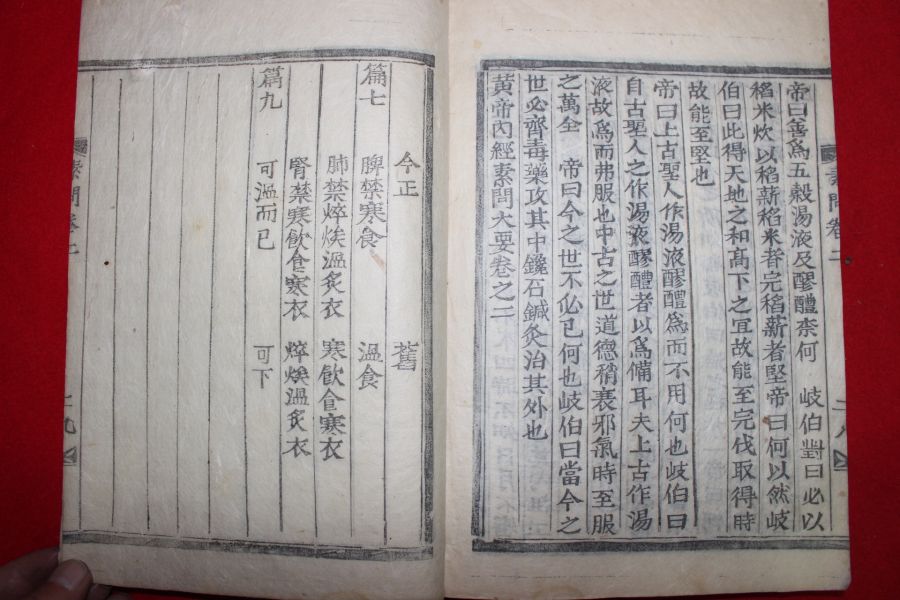 帝曰善爲五穀湯液及醪醴柰何 岐伯對曰必以
稻米炊以稻薪稻米者完稻薪者堅帝曰何以然岐
伯曰此得天地之和高下之宜故能至完伐取得時
故能至堅也
帝曰上古聖人作湯液醪醴爲而不用何也岐伯曰
自古聖人之作湯液醪醴者以爲備耳夫上古作湯
液故爲而弗服也中古之世道德稍衰邪氣時至服
之萬全 帝曰今之世不必已何也岐伯曰當今之
世必齊毒藥攻其中鑱石鍼灸治其外也
黃帝內經素問大要卷之二
素問卷二
二八
今正 舊
篇七 脾禁寒食 溫食
肺禁焠㶼溫炙衣 寒飮食寒衣
腎禁寒飮食寒衣 焠㶼溫炙衣
篇九 可溫而已 可下
素問卷二
二九